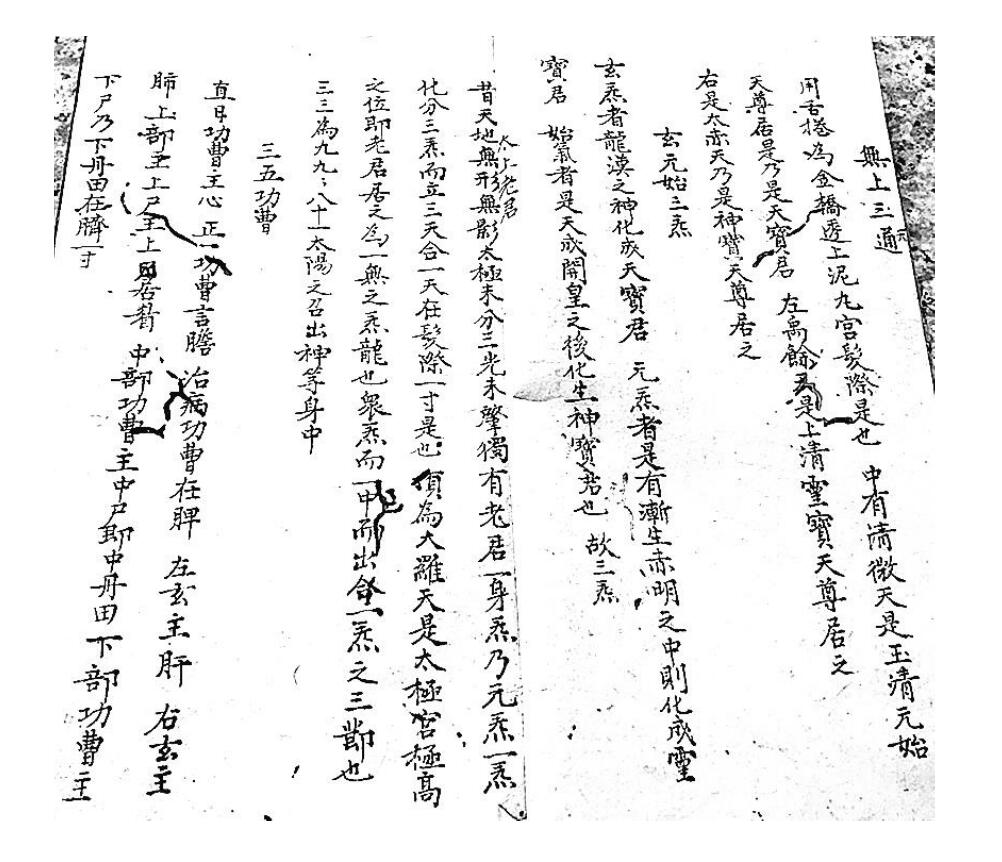 無上三通
用舌捲為金轎透上泥九宮髮際是也 中有清微天是玉清元始
天尊居是乃是天寶君 左禹餘天是上清靈寶天尊居之
右是太赤天乃是神寶天尊居之
玄元始三炁
玄炁者龍漢之神化成天寶君 元炁者是有漸生赤明之中則化成靈
寶君 始氣者是天成開皇之後化生神寶君也 故三炁
太上老君
昔天地無形無影太極未分三光未肇獨有老君一身炁乃元炁一炁
化分三炁而立三天合一天在髮際一寸是也 頂為大羅天是太極宮極高
之位即老君居之為一無之炁龍也眾炁而一中而出合一炁之三節也
三三為九九八十太陽之召出神等身中
三五功曹
直日功曹主心 正一功曹言膽 治病功曹在脾 左玄主肝 右玄主
肺 上部主上尸主上居者 中部功曹主中尸即中丹田 下部功曹主
下尸乃下丹田在臍一寸